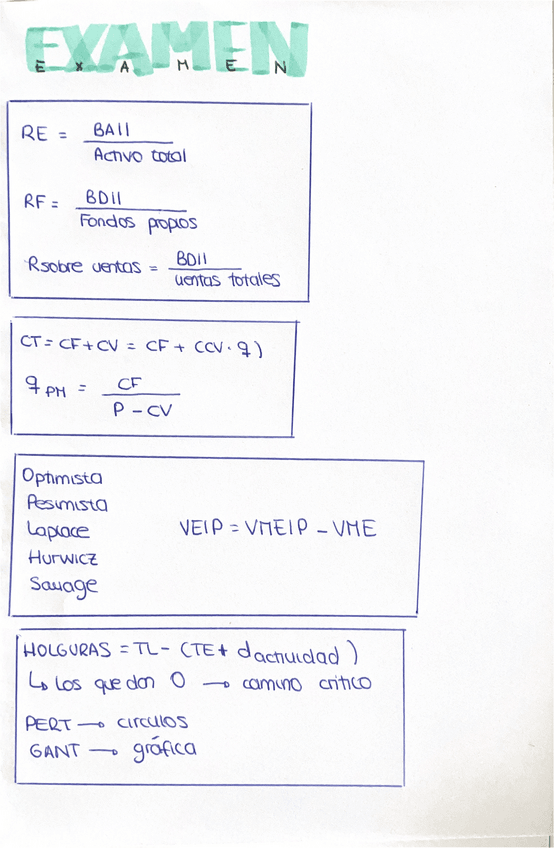 EXAMEN
E X A M E N
RE = BAII / Activo total
RF = BDII / Fondos propios
Rsobre ventas = BDII / ventas totales
CT = CF + CV = CF + (CV · q)
q PM = CF / P - CV
Optimista
Pesimista
Laplace
VEIP = VMEIP - VME
Hurwicz
Savage
HOLGURAS = TL - (TE + dactividad)
↳ los que dan 0 → camino crítico
PERT → círculos
GANT → gráfica